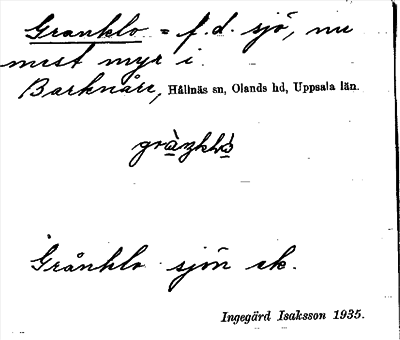 Granklo = f.d. sjö, nu
mest myr i
Barknåre, Hållnäs sn, Olands hd, Uppsala län.
Grånklo sjön ek.
Ingegärd Isaksson 1935.